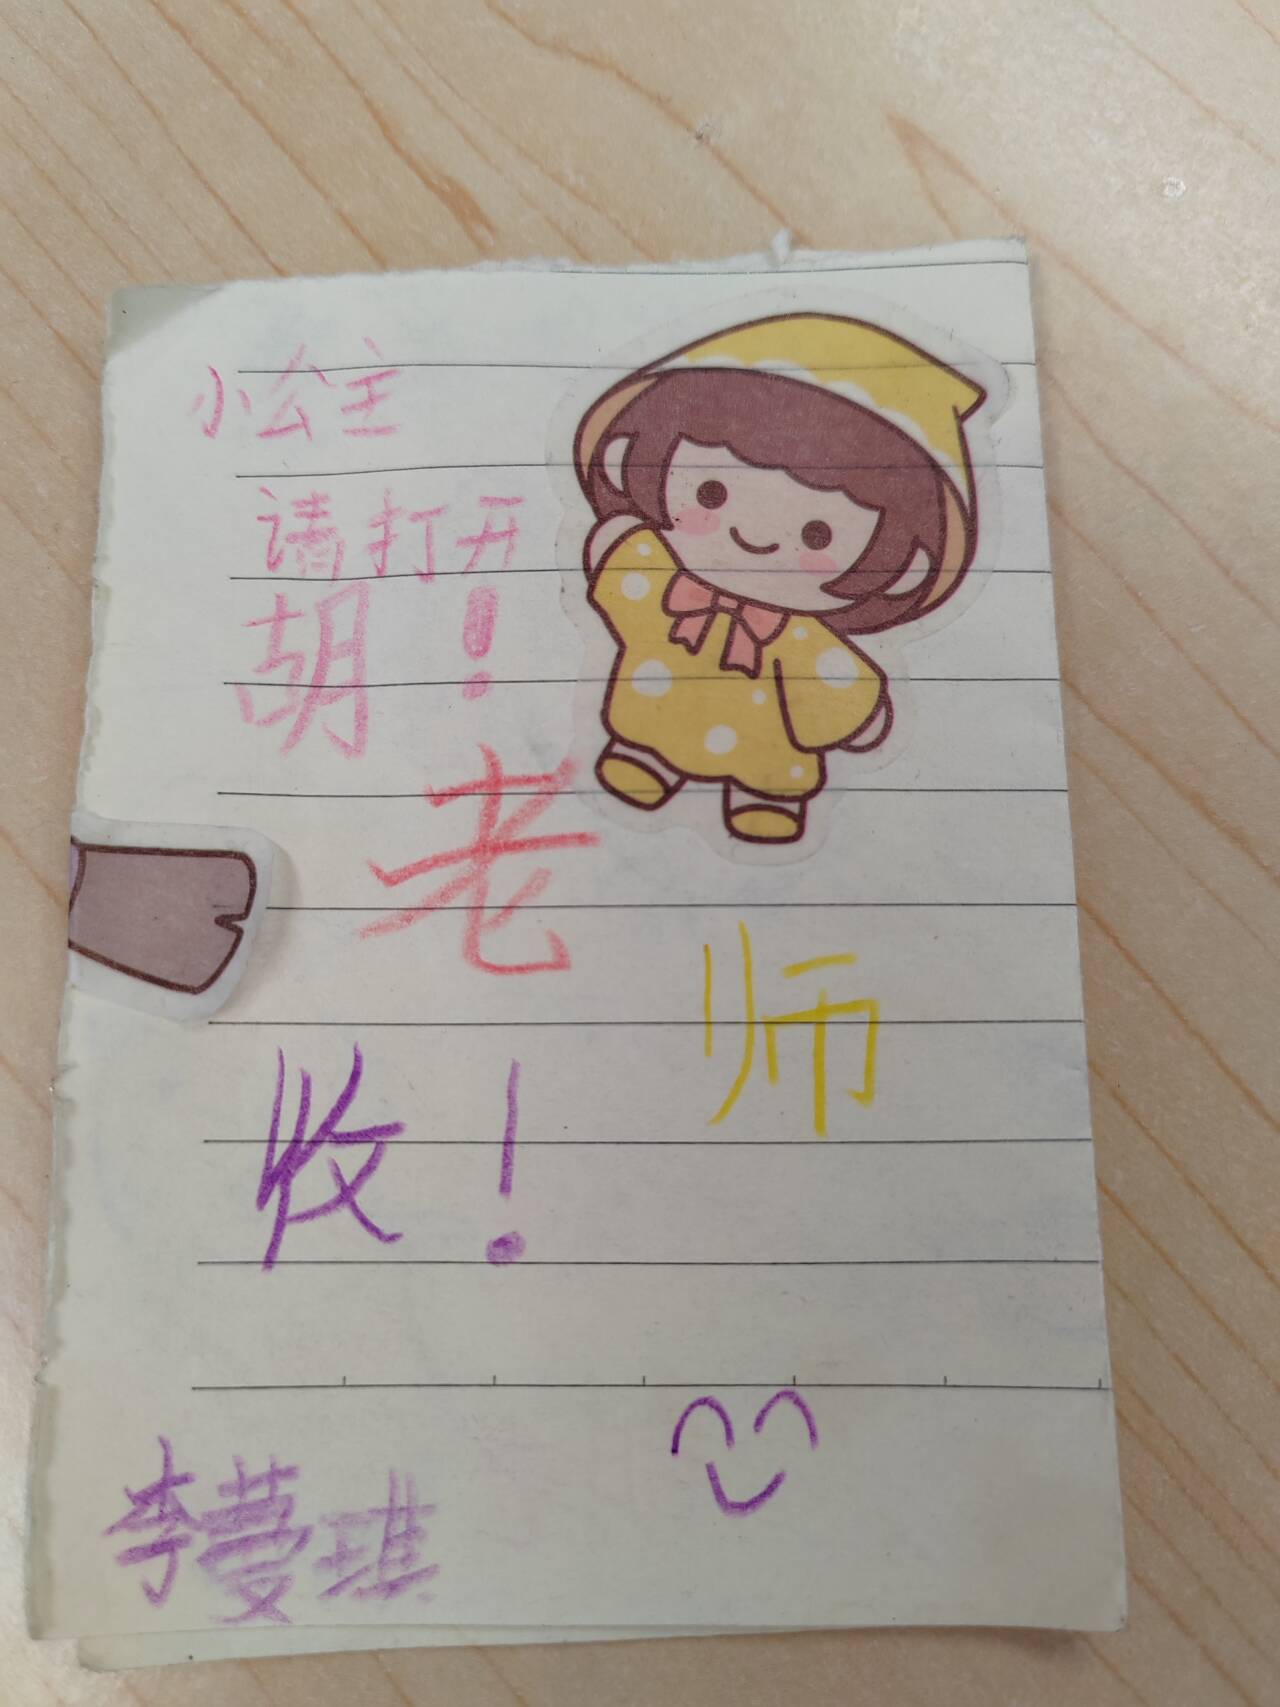 小公主
请打开!
胡
老
师
收!
李蔓琪